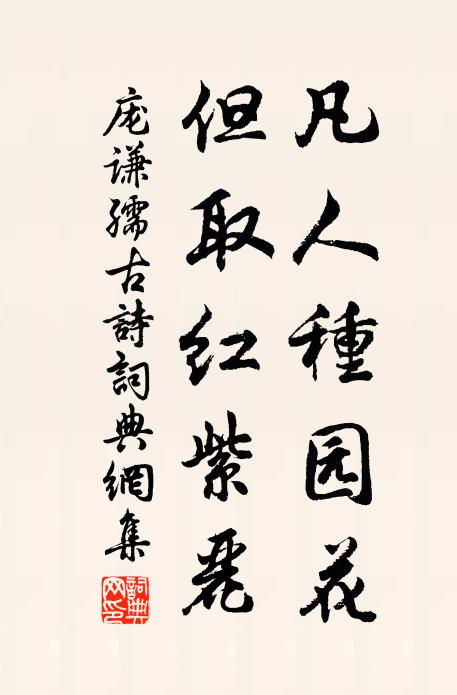 凡人種园花
但取红紫麗
庞谦孺古詩詞典網集
詞典网印